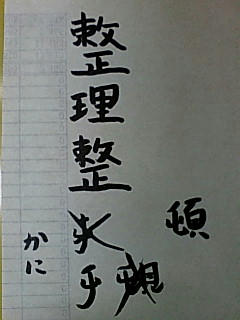 整理整
頓
かに